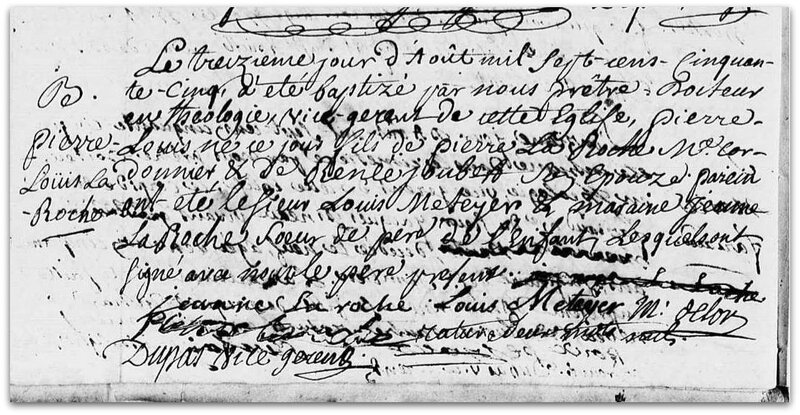 B.
Pierre
Loüis La
Roche
Le treizieme jour d'Août mil Sept-cens-Cinquan-
te-Cinq, a été baptizé par nous prêtre-Docteur
en theologie, vice-gerent de cette Eglise, pierre-
Louis né ce jour fils de pierre La Roche Me. Cor-
donnier & de Renée Joubert Son Epouze. parein
ont été le Sieur Louis Meteyer & maraine Jeanne
La Roche Soeur de pere de l'Enfant, Lesquels ont
signé avec nous le pere present.
jeanne La roche Louis Meteyer
rature deux mots nul.
Dupas vice gerent